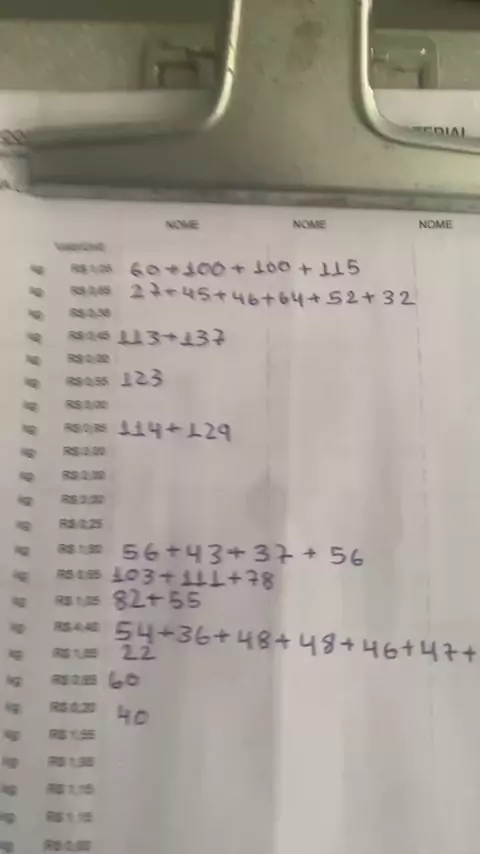 TERIAL
NOME NOME NOME
kg R$ 1,05 60+100+100+115
kg 27+45+46+64+52+32
kg
kg R$ 0,45 113+137
kg R$ 0,00
kg R$ 0,55 123
kg R$ 0,00
kg R$ 0,85 114+129
kg
kg
kg
kg R$ 0,25
kg 56+43+37+56
kg R$ 0,65 103+111+78
kg R$ 1,05 82+55
kg R$ 4,40 54+36+48+48+46+47+
kg R$ 1,65 22
kg R$ 2,65 60
kg R$ 0,20 40
kg R$ 1,55
kg
kg R$ 1,15
kg R$ 1,15
kg